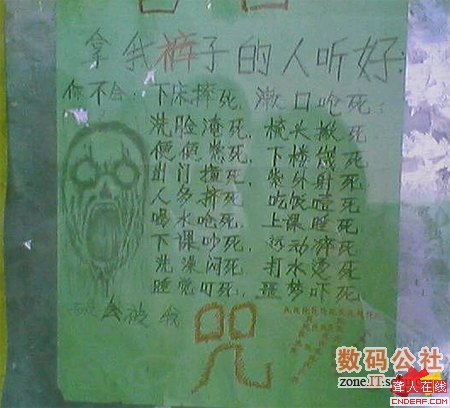 拿我裤子的人听好:
你不会:下床摔死,漱口呛死
洗脸淹死,梳头揪死
便便憋死,下楼崴死
出门撞死,紫外射死
人多挤死,吃饭噎死
喝水呛死,上课睡死
下课吵死,运动猝死
洗澡闷死,打水烫死
睡觉叮死,噩梦吓死
会被我
咒
死死死死死死死死
数码公社
zone.IT.
聋人在线
CNDEAF.COM